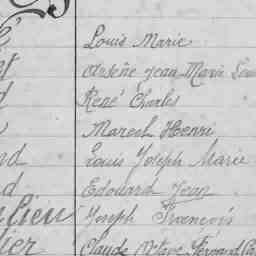 Louis Marie
Arsène Jean Marie
René Charles
Henri
d Louis Joseph Marie
d Edouard Jean
lieu Joseph François
lier Claude Octave Fernand